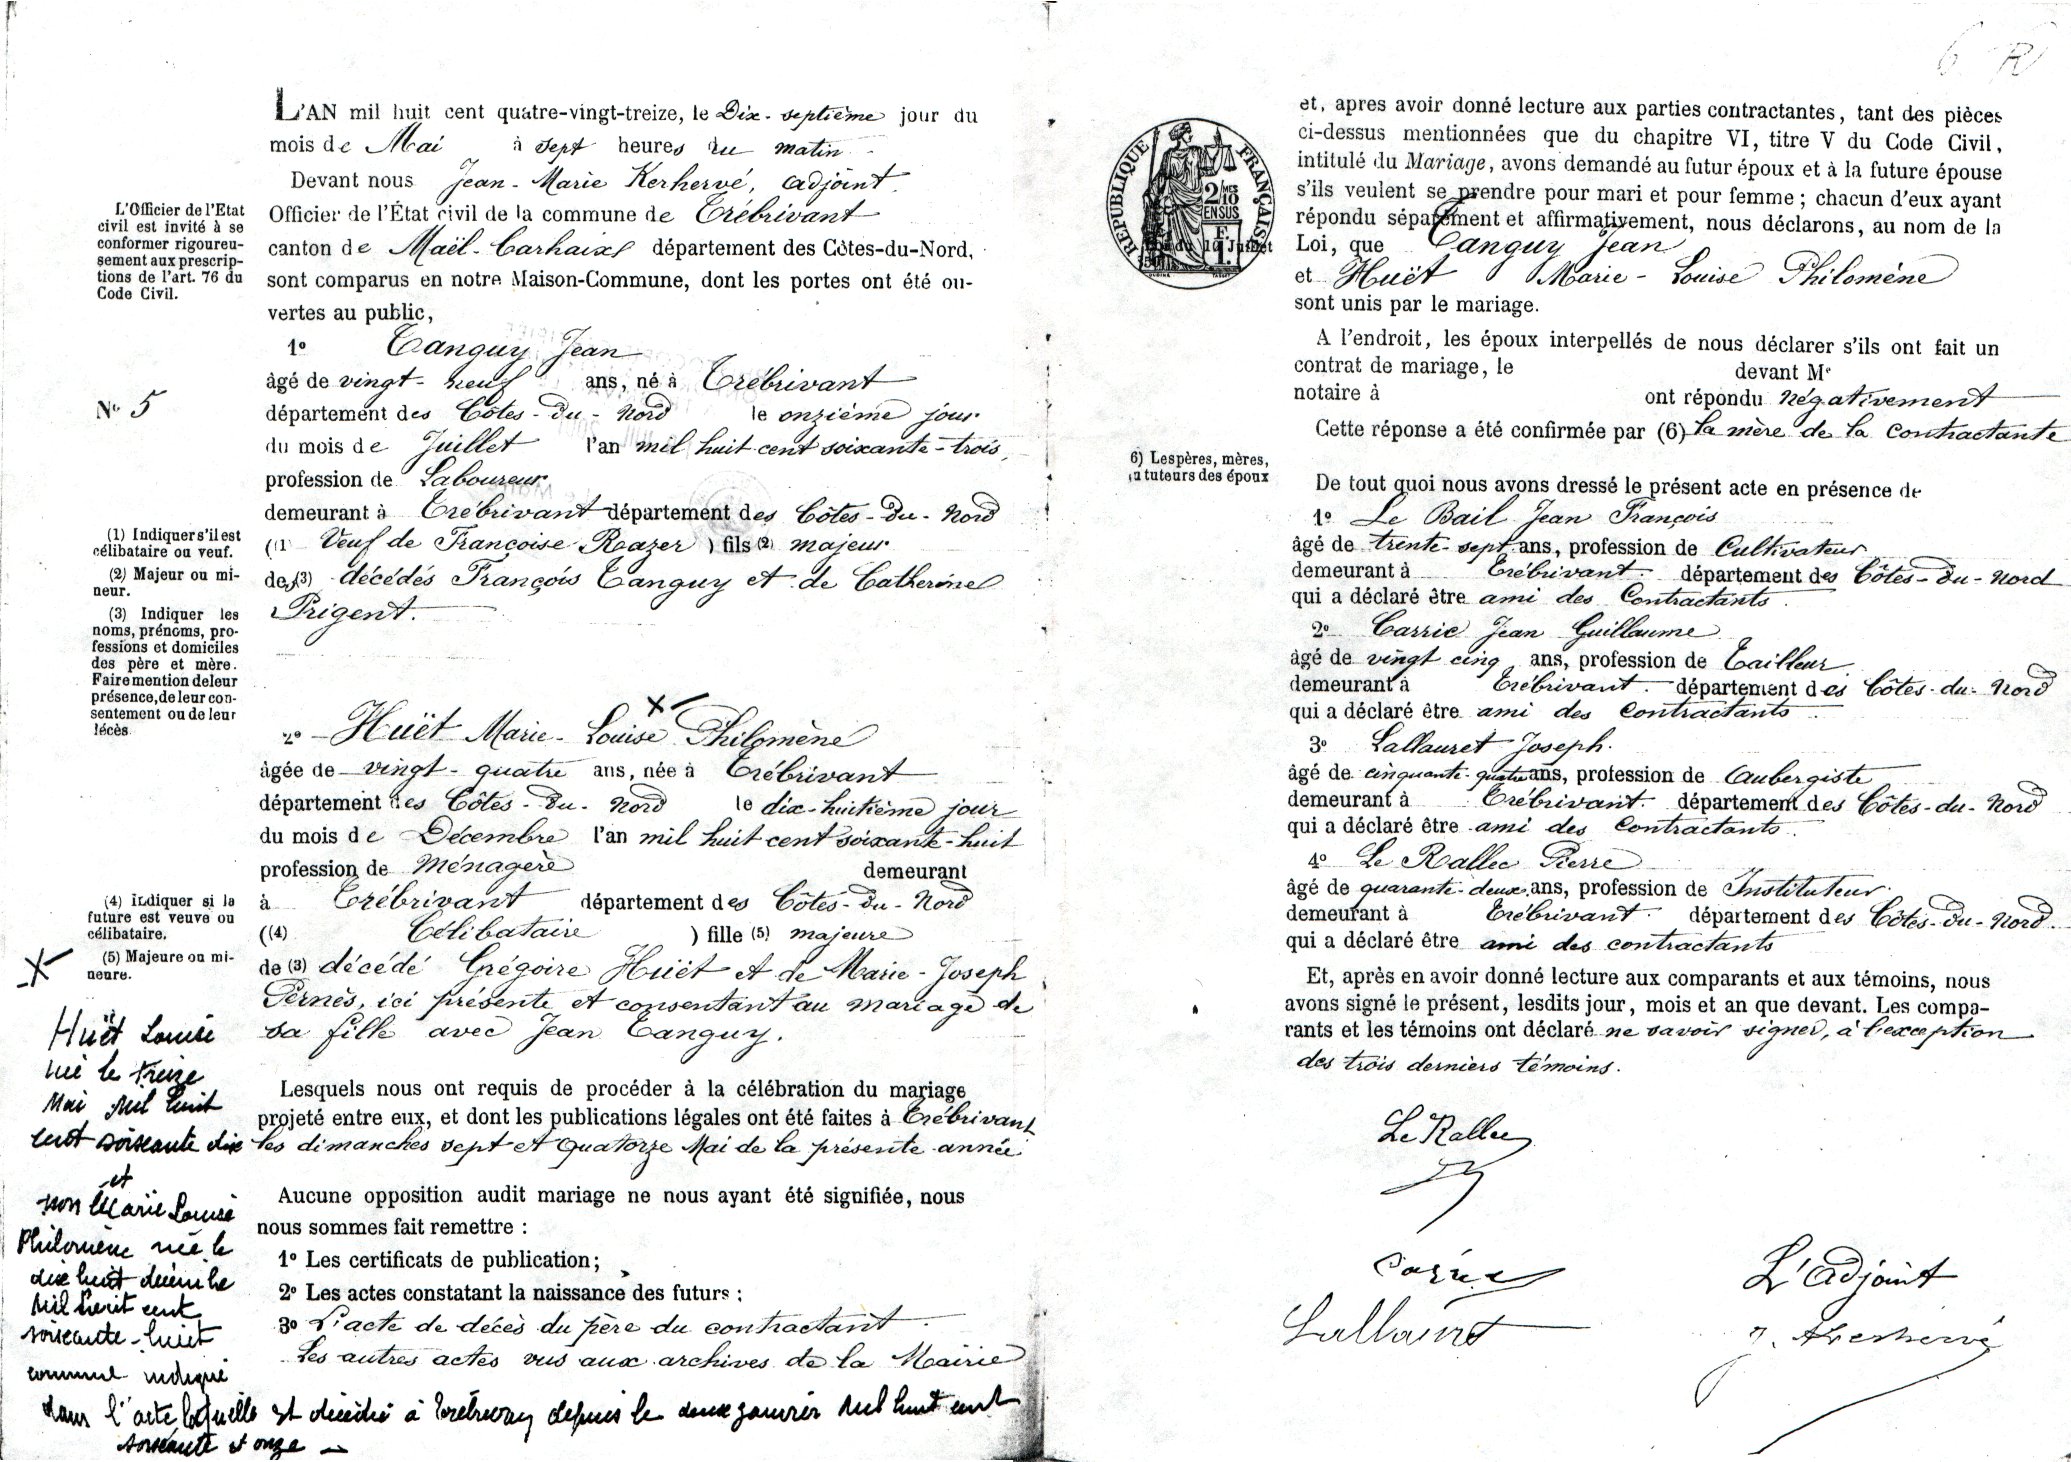 L'AN mil huit cent quatre-vingt-treize, le Dix-septième jour du
mois de Mai à sept heures du matin
Devant nous Jean-Marie Kerhervé, adjoint
Officier de l'État civil de la commune de Trébrivant
canton de Maël-Carhaix département des Côtes-du-Nord,
sont comparus en notre Maison-Commune, dont les portes ont été ou-
vertes au public,
1º Tanguy Jean
âgé de vingt-neuf ans, né à Trébrivant
département des Côtes-du-Nord le onzième jour
du mois de Juillet l'an mil huit cent soixante-trois,
profession de Laboureur
demeurant à Trébrivant département des Côtes-du-Nord
(1 Veuf de Françoise Razer ) fils (2) majeur
des (3) décédés François Tanguy et de Catherine
Prigent.
2º Huët Marie-Louise Philomène
âgée de vingt-quatre ans, née à Trébrivant
département des Côtes-du-Nord le dix-huitième jour
du mois de Décembre l'an mil huit cent soixante-huit
profession de Ménagère demeurant
à Trébrivant département des Côtes-du-Nord
((4) Célibataire ) fille (5) majeure
de (3) décédé Grégoire Huët et de Marie-Joseph
Pernès, ici présente et consentant au mariage de
sa fille avec Jean Tanguy.
Lesquels nous ont requis de procéder à la célébration du mariage
projeté entre eux, et dont les publications légales ont été faites à Trébrivant
les dimanches sept et quatorze Mai de la présente année
Aucune opposition audit mariage ne nous ayant été signifiée, nous
nous sommes fait remettre :
1º Les certificats de publication;
2º Les actes constatant la naissance des futurs ;
3º L'acte de décès du père du contractant
Les autres actes vus aux archives de la Mairie
L'Officier de l'Etat
civil est invité à se
conformer rigoureu-
sement aux prescrip-
tions de l'art. 76 du
Code Civil.
Nº 5
(1) Indiquer s'il est
célibataire ou veuf.
(2) Majeur ou mi-
neur.
(3) Indiquer les
noms, prénoms, pro-
fessions et domiciles
des père et mère.
Faire mention de leur
présence, de leur con-
sentement ou de leur
décès
(4) Indiquer si la
future est veuve ou
célibataire.
(5) Majeure ou mi-
neure.
Huët Louise
née le treize
Mai mil huit
cent soixante dix
et
non Marie Louise
Philomène née le
dix huit décembre
mil huit cent
soixante-huit
comme indiqué
dans l'acte laquelle est décédée à Trébrivan depuis le deux janvier mil huit cent
soixante et onze
6 R
et, après avoir donné lecture aux parties contractantes, tant des pièces
ci-dessus mentionnées que du chapitre VI, titre V du Code Civil,
intitulé du Mariage, avons demandé au futur époux et à la future épouse
s'ils veulent se prendre pour mari et pour femme ; chacun d'eux ayant
répondu séparément et affirmativement, nous déclarons, au nom de la
Loi, que Tanguy Jean
et Huët Marie-Louise Philomène
sont unis par le mariage.
RÉPUBLIQUE FRANÇAISE
2/10 MES
EN SUS
1 F.
10 Juillet
A l'endroit, les époux interpellés de nous déclarer s'ils ont fait un
contrat de mariage, le devant Me
notaire à ont répondu négativement
Cette réponse a été confirmée par (6) la mère de la contractante
6) Les pères, mères,
ou tuteurs des époux
De tout quoi nous avons dressé le présent acte en présence de
1º Le Bail Jean François
âgé de trente-sept ans, profession de Cultivateur
demeurant à Trébrivant département des Côtes-du-Nord
qui a déclaré être ami des Contractants
2º Carric Jean Guillaume
âgé de vingt cinq ans, profession de Tailleur
demeurant à Trébrivant département des Côtes-du-Nord
qui a déclaré être ami des Contractants
3º Lallauret Joseph.
âgé de cinquante-quatre ans, profession de Aubergiste
demeurant à Trébrivant département des Côtes-du-Nord
qui a déclaré être ami des Contractants
4º Le Rallec Pierre
âgé de quarante-deux ans, profession de Instituteur
demeurant à Trébrivant département des Côtes-du-Nord
qui a déclaré être ami des contractants
Et, après en avoir donné lecture aux comparants et aux témoins, nous
avons signé le présent, lesdits jour, mois et an que devant. Les compa-
rants et les témoins ont déclaré ne savoir signer, à l'exception
des trois derniers témoins.
Le Rallec
Carric
Lallauret
L'adjoint
J. Kerhervé